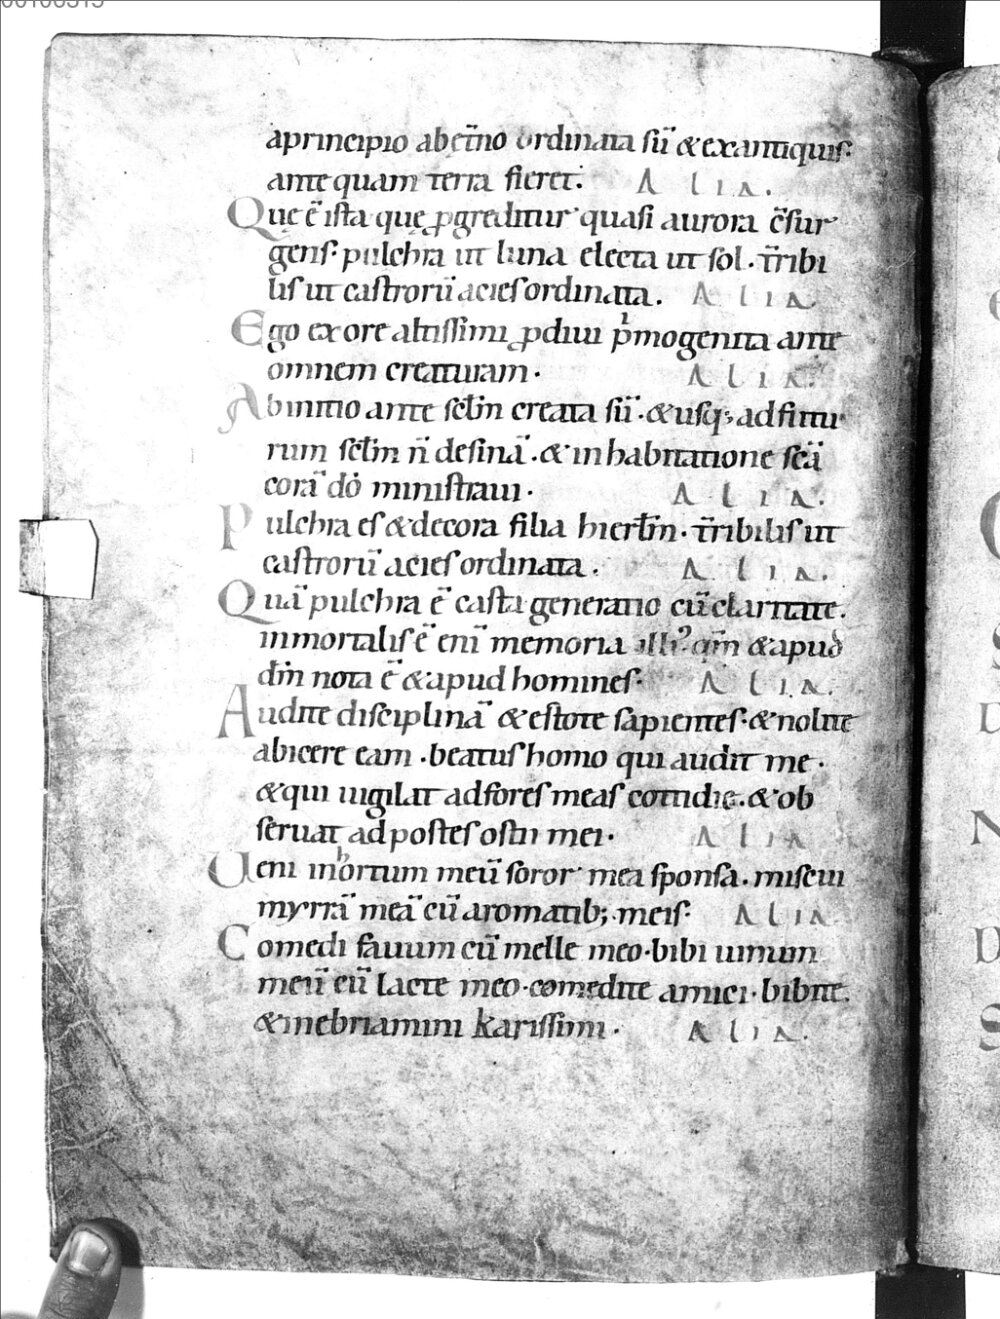 aprincipio abet̄no ordinata sū &exantiquis·
antequam terra fieret: Alia.
Quę ē ista quę ꝓgreditur quasi aurora c̄sur
gens· pulchra ut luna electa ut sol· t̄ribi
lis ut castrorū acies ordinata. Alia
Ego ex ore altissimi ꝓdiui pͥmogenita ante
omnem creaturam· Alia:
Abinitio ante sc̄lm creata sū·&usq; ad futu
rum sc̄lm n̄ desinā·&inhabitatione sc̄a
corā do ministraui· Alia.
Pulchra es &decora filia hierl̄m· t̄ribilis ut
castrorū acies ordinata. Alia.
Quā pulchra ē casta generatio cū claritate.
inmortalis ē enī memoria illiꝰ qm̄ &apud
dm̄ nota ē &apud homines· Alia.
Audite disciplinā &estote sapientes·&nolite
abicere eam·beatus homo qui audit me·
&qui uigilat adfores meas cotidie·&ob
seruat ad postes ostii mei· Alia
Ueni inhortum meū soror mea sponsa·miscui
myrrā meā cū aromatib; meis· Alia
Comedi fauum cū melle meo·bibi uinum
meū cū lacte meo·comedite amici·bibite.
&inebriamini karissimi· Alia.